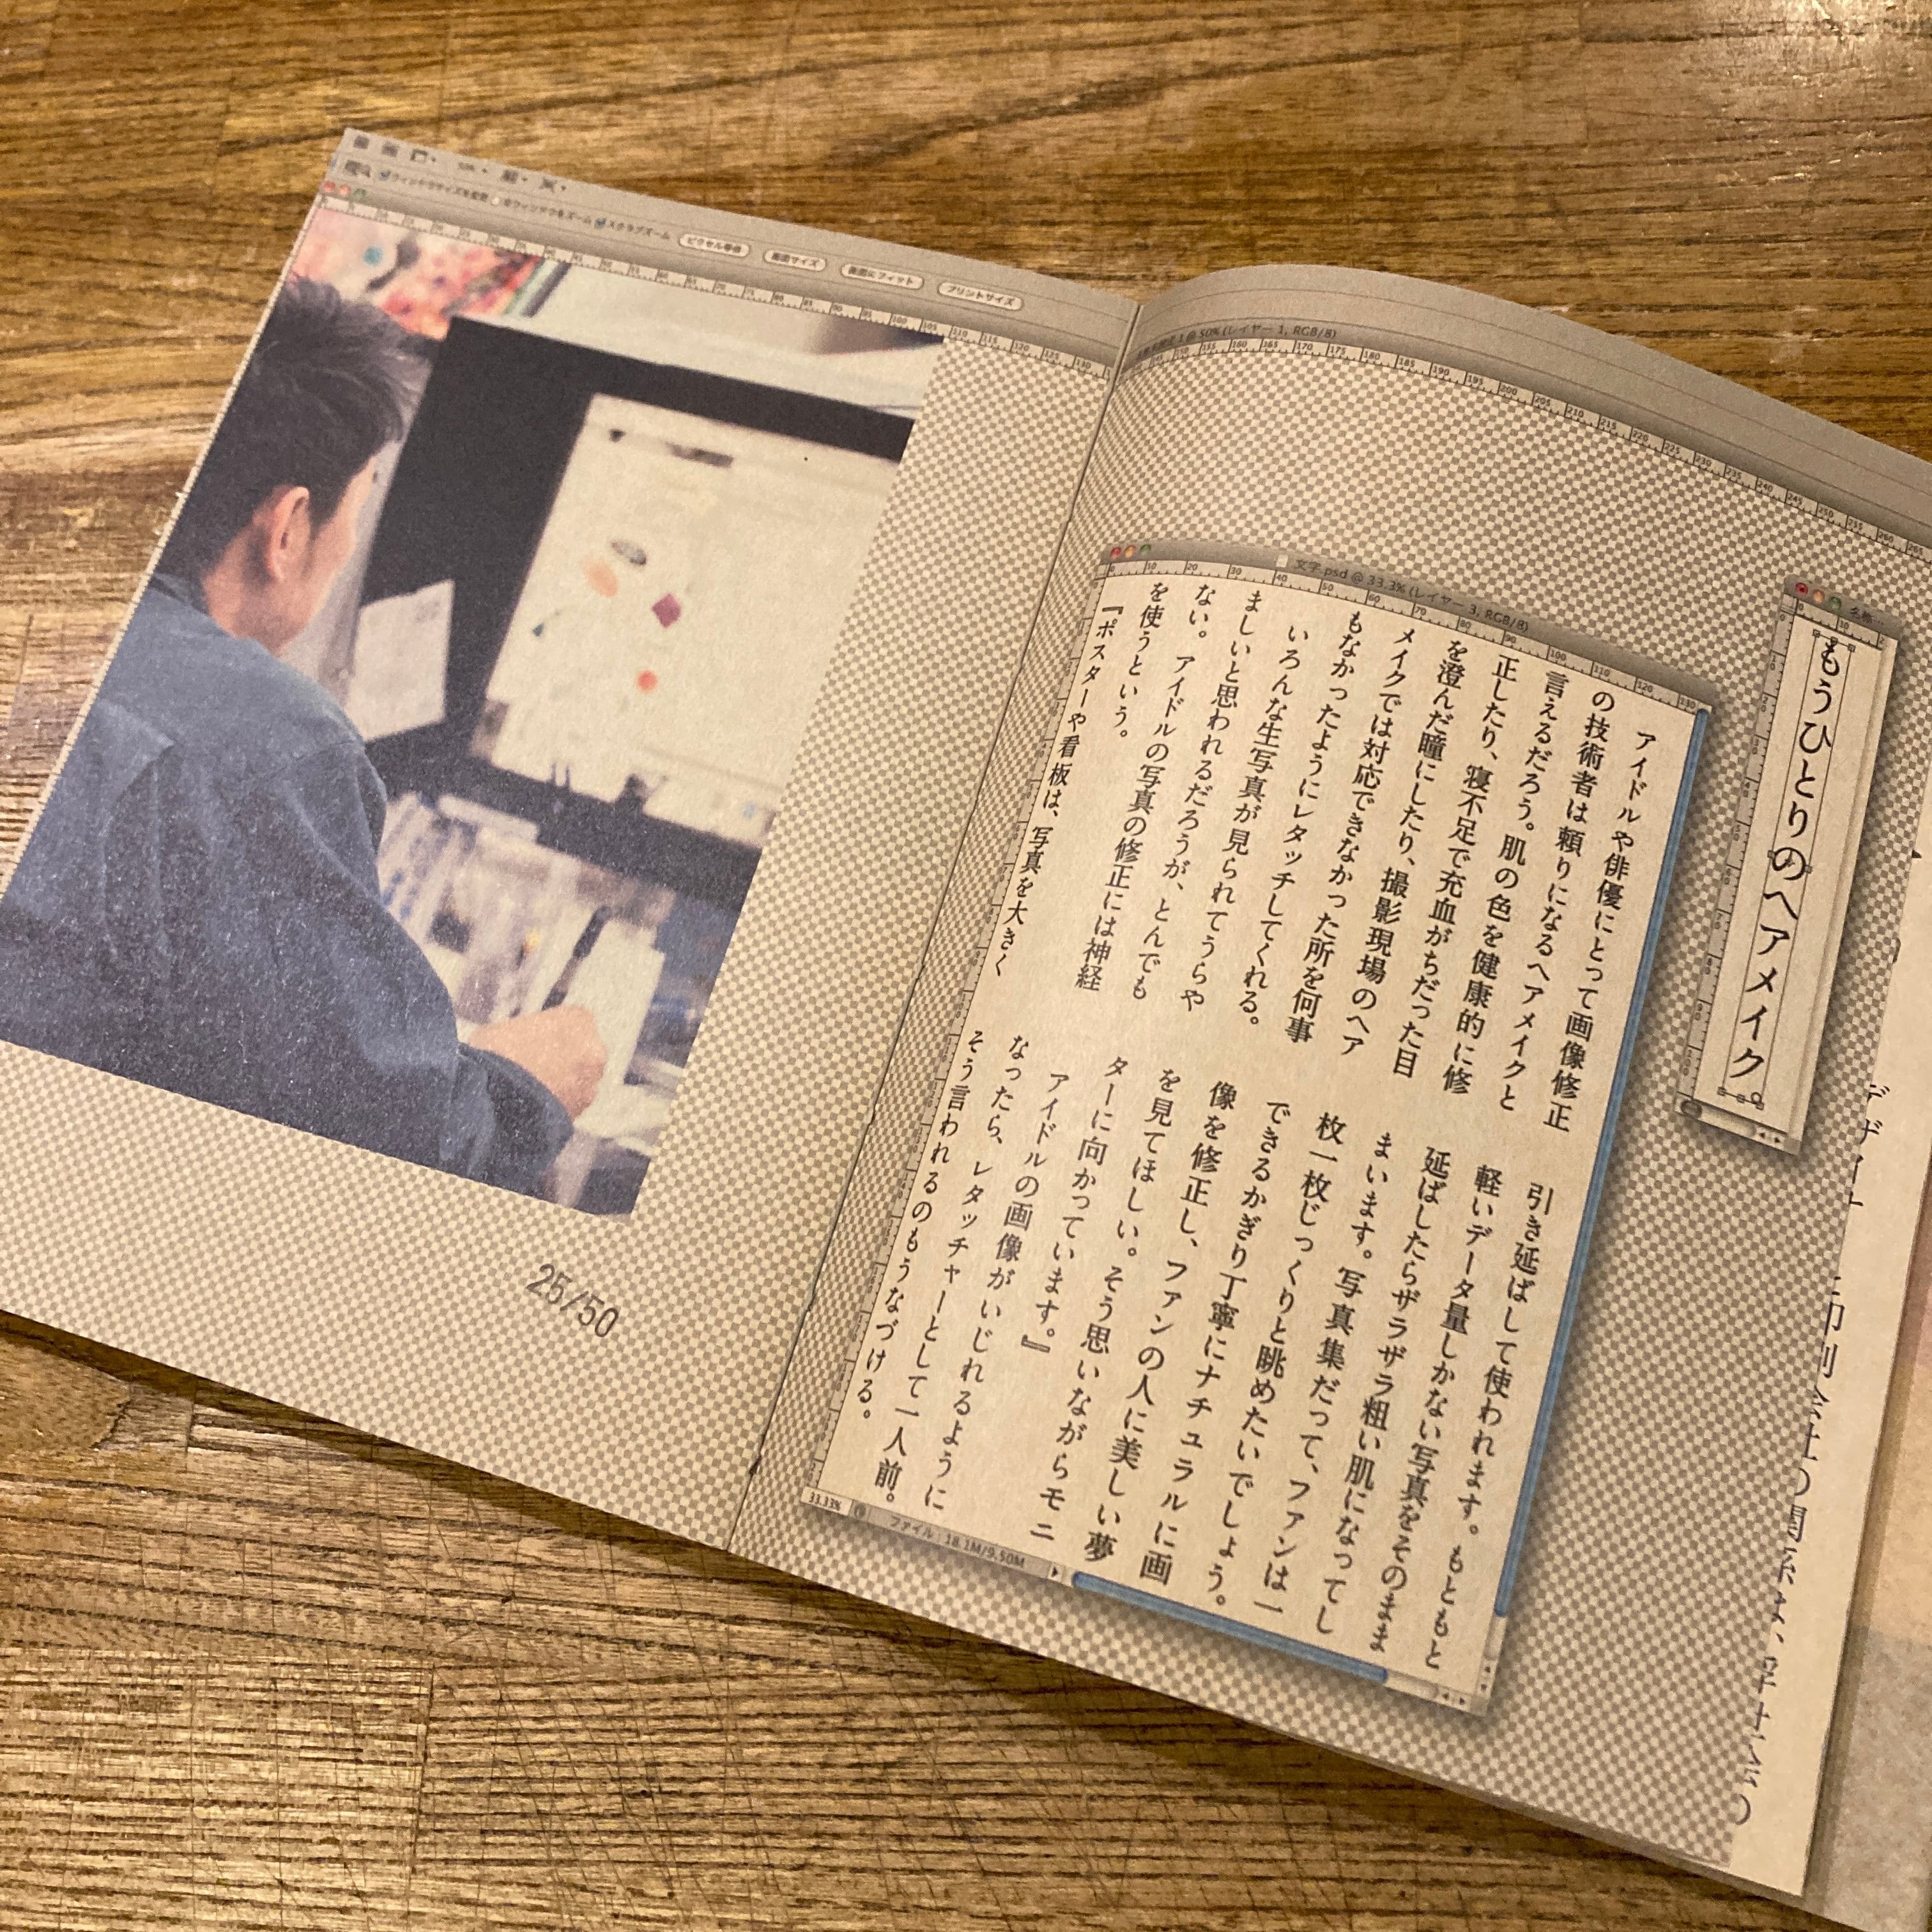 ウィンドウサイズを変更 全ウィンドウをズーム スクラブズーム ピクセル等倍 画面サイズ 画面にフィット プリントサイズ
@ 50% (レイヤー 1, RGB/8)
もうひとりのヘアメイク
文字.psd @ 33.3% (レイヤー 3, RGB/8)
アイドルや俳優にとって画像修正
の技術者は頼りになるヘアメイクと
言えるだろう。肌の色を健康的に修
正したり、寝不足で充血がちだった目
を澄んだ瞳にしたり、撮影現場のヘア
メイクでは対応できなかった所を何事
もなかったようにレタッチしてくれる。
いろんな生写真が見られてうらや
ましいと思われるだろうが、とんでも
ない。アイドルの写真の修正には神経
を使うという。
『ポスターや看板は、写真を大きく
引き延ばして使われます。もともと
軽いデータ量しかない写真をそのまま
延ばしたらザラザラ粗い肌になってし
まいます。写真集だって、ファンは一
枚一枚じっくりと眺めたいでしょう。
できるかぎり丁寧にナチュラルに画
像を修正し、ファンの人に美しい夢
を見てほしい。そう思いながらモニ
ターに向かっています。』
アイドルの画像がいじれるように
なったら、レタッチャーとして一人前。
そう言われるのもうなづける。
33.33% ファイル : 18.1M/9.50M
25/50